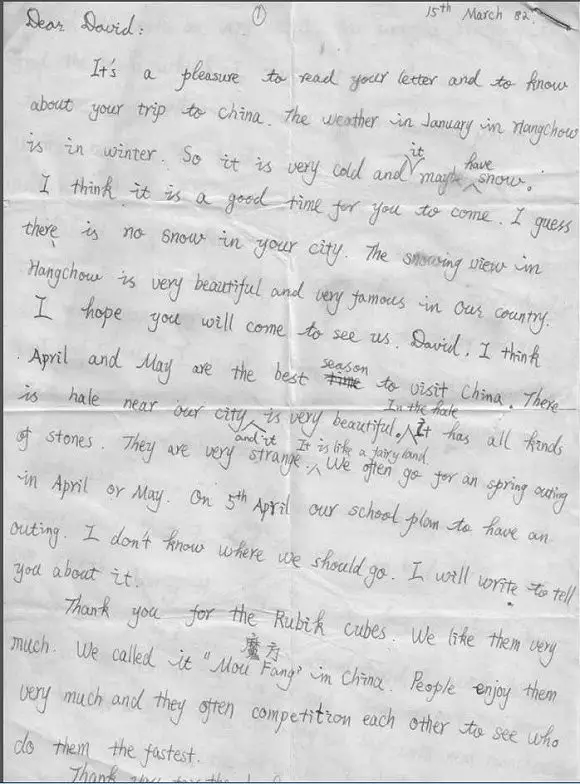 ①
15th March 82.
Dear David:
It's a pleasure to read your letter and to know
about your trip to China. The weather in January in Hangchow
is in winter. So it is very cold and it maybe have snow.
I think it is a good time for you to come. I guess
there is no snow in your city. The snowing view in
Hangchow is very beautiful and very famous in our country.
I hope you will come to see us. David, I think
April and May are the best season to visit China. There
is hale near our city and it is very beautiful. In the hale it has all kinds
of stones. They are very strange. It is like a fairyland. We often go for an spring outing
in April or May. On 5th April our school plan to have an
outing. I don't know where we should go. I will write to tell
you about it.
Thank you for the Rubik cubes. We like them very
much. We called it "Mou Fang" 魔方 in China. People enjoy them
very much and they often competition each other to see who
do them the fastest.
Thank you for the